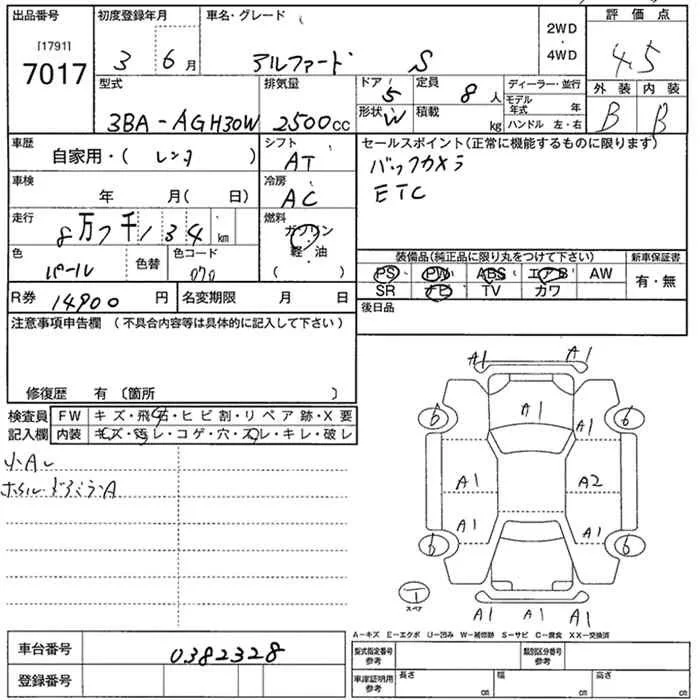 出品番号 初度登録年月 車名・グレード 2WD・4WD 評価点
[1791]
7017 3 6月 アルファード S 4.5
型式 排気量 ドア 5 定員 8人 ディーラー・並行 外装 内装
3BA-AGH30W 2500cc 形状 W 積載 kg モデル年式 年 B B
ハンドル 左・右
車歴 自家用・( レンタ ) シフト AT セールスポイント(正常に機能するものに限ります)
バックカメラ
ETC
車検 年 月( 日) 冷房 AC
走行 8万7千134km 燃料 ガソリン・軽・油 ( )
色 パール 色替 色コード 070
装備品(純正品に限り丸をつけて下さい) 新車保証書
PS PW ABS エアB AW 有・無
SR ナビ TV カワ
R券 14900円 名変期限 月 日 後日品
注意事項申告欄 (不具合内容等は具体的に記入して下さい)
修復歴 有 〔箇所 〕
検査員記入欄 FW キズ・飛石・ヒビ割・リペア跡・X要
内装 キズ・汚レ・コゲ・穴・スレ・キレ・破レ
小A
A1 A1
A1 A1
6 6
A1 A2
A1 A1
6 6
スペア
A1 A1 A1
A−キズ E−エクボ U−凹み W−補修跡 S−サビ C−腐食 XX−交換済
車台番号 0382328 型式指定番号 参考 類別区分番号 参考
登録番号 車庫証明用 参考 長さ cm 幅 cm 高さ cm